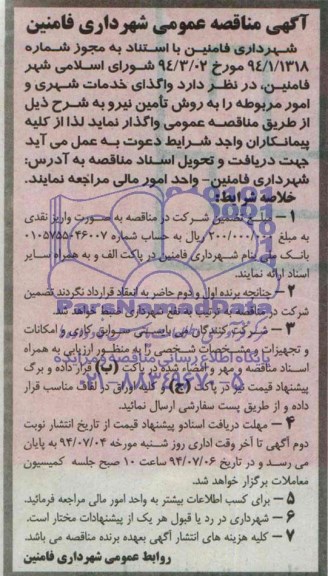 آگهی مناقصه عمومی شهرداری فامنین
شهرداری فامنین با استناد به مجوز شماره
۹۴/۱/۱۳۱۸ مورخ ۹۴/۳/۰۲ شورای اسلامی شهر
فامنین، در نظر دارد واگذای خدمات شهری و
امور مربوطه را به روش تأمین نیرو به شرح ذیل
از طریق مناقصه عمومی واگذار نماید لذا از کلیه
پیمانکاران واجد شرایط دعوت به عمل می آید
جهت دریافت و تحویل اسناد مناقصه به آدرس:
شهرداری فامنین- واحد امور مالی مراجعه نمایند.
خلاصه شرایط:
۱ - شرکت در مناقصه به صورت واریز نقدی
به مبلغ ۲۰۰/۰۰۰/۰۰۰ ریال به حساب شماره ۰۱۰۵۷۵۵۰۴۶۰۰۷
بانک ملی بنام شهرداری فامنین در پاکت الف و به همراه سایر
اسناد ارائه نمایند.
۲ - چنانچه برنده اول و دوم حاضر به انعقاد قرارداد نگردند تضمین
شرکت در مناقصه به ترتیب به نفع شهرداری ضبط خواهد شد.
۳ - شرکت کنندگان می بایستی سوابق کاری و امکانات
و تجهیزات و مشخصات شخصی را به منظور ارزیابی به همراه
اسناد مناقصه و مهر و امضاء شده در پاکت (ب) قرار داده و برگ
پیشنهاد قیمت نیز در پاکت (ج) و کلیه اوراق در لفاف مناسب قرار
داده و از طریق پست سفارشی ارسال نمائید.
۴ - مهلت دریافت اسنادو پیشنهاد قیمت از تاریخ انتشار نوبت
دوم آگهی تا آخر وقت اداری روز شنبه مورخه ۹۴/۰۷/۰۴ به پایان
می رسد و در تاریخ ۹۴/۰۷/۰۶ ساعت ۱۰ صبح جلسه کمیسیون
معاملات برگزار خواهد شد.
۵ - برای کسب اطلاعات بیشتر به واحد امور مالی مراجعه فرمائید.
۶ - شهرداری در رد یا قبول هر یک از پیشنهادات مختار است.
۷ - کلیه هزینه های انتشار آگهی بعهده برنده مناقصه می باشد.
روابط عمومی شهرداری فامنین
ParsNamadData
پایگاه اطلاع رسانی مناقصه و مزایده
۰۲۱-۸۸۳۴۹۶۷۰-۵